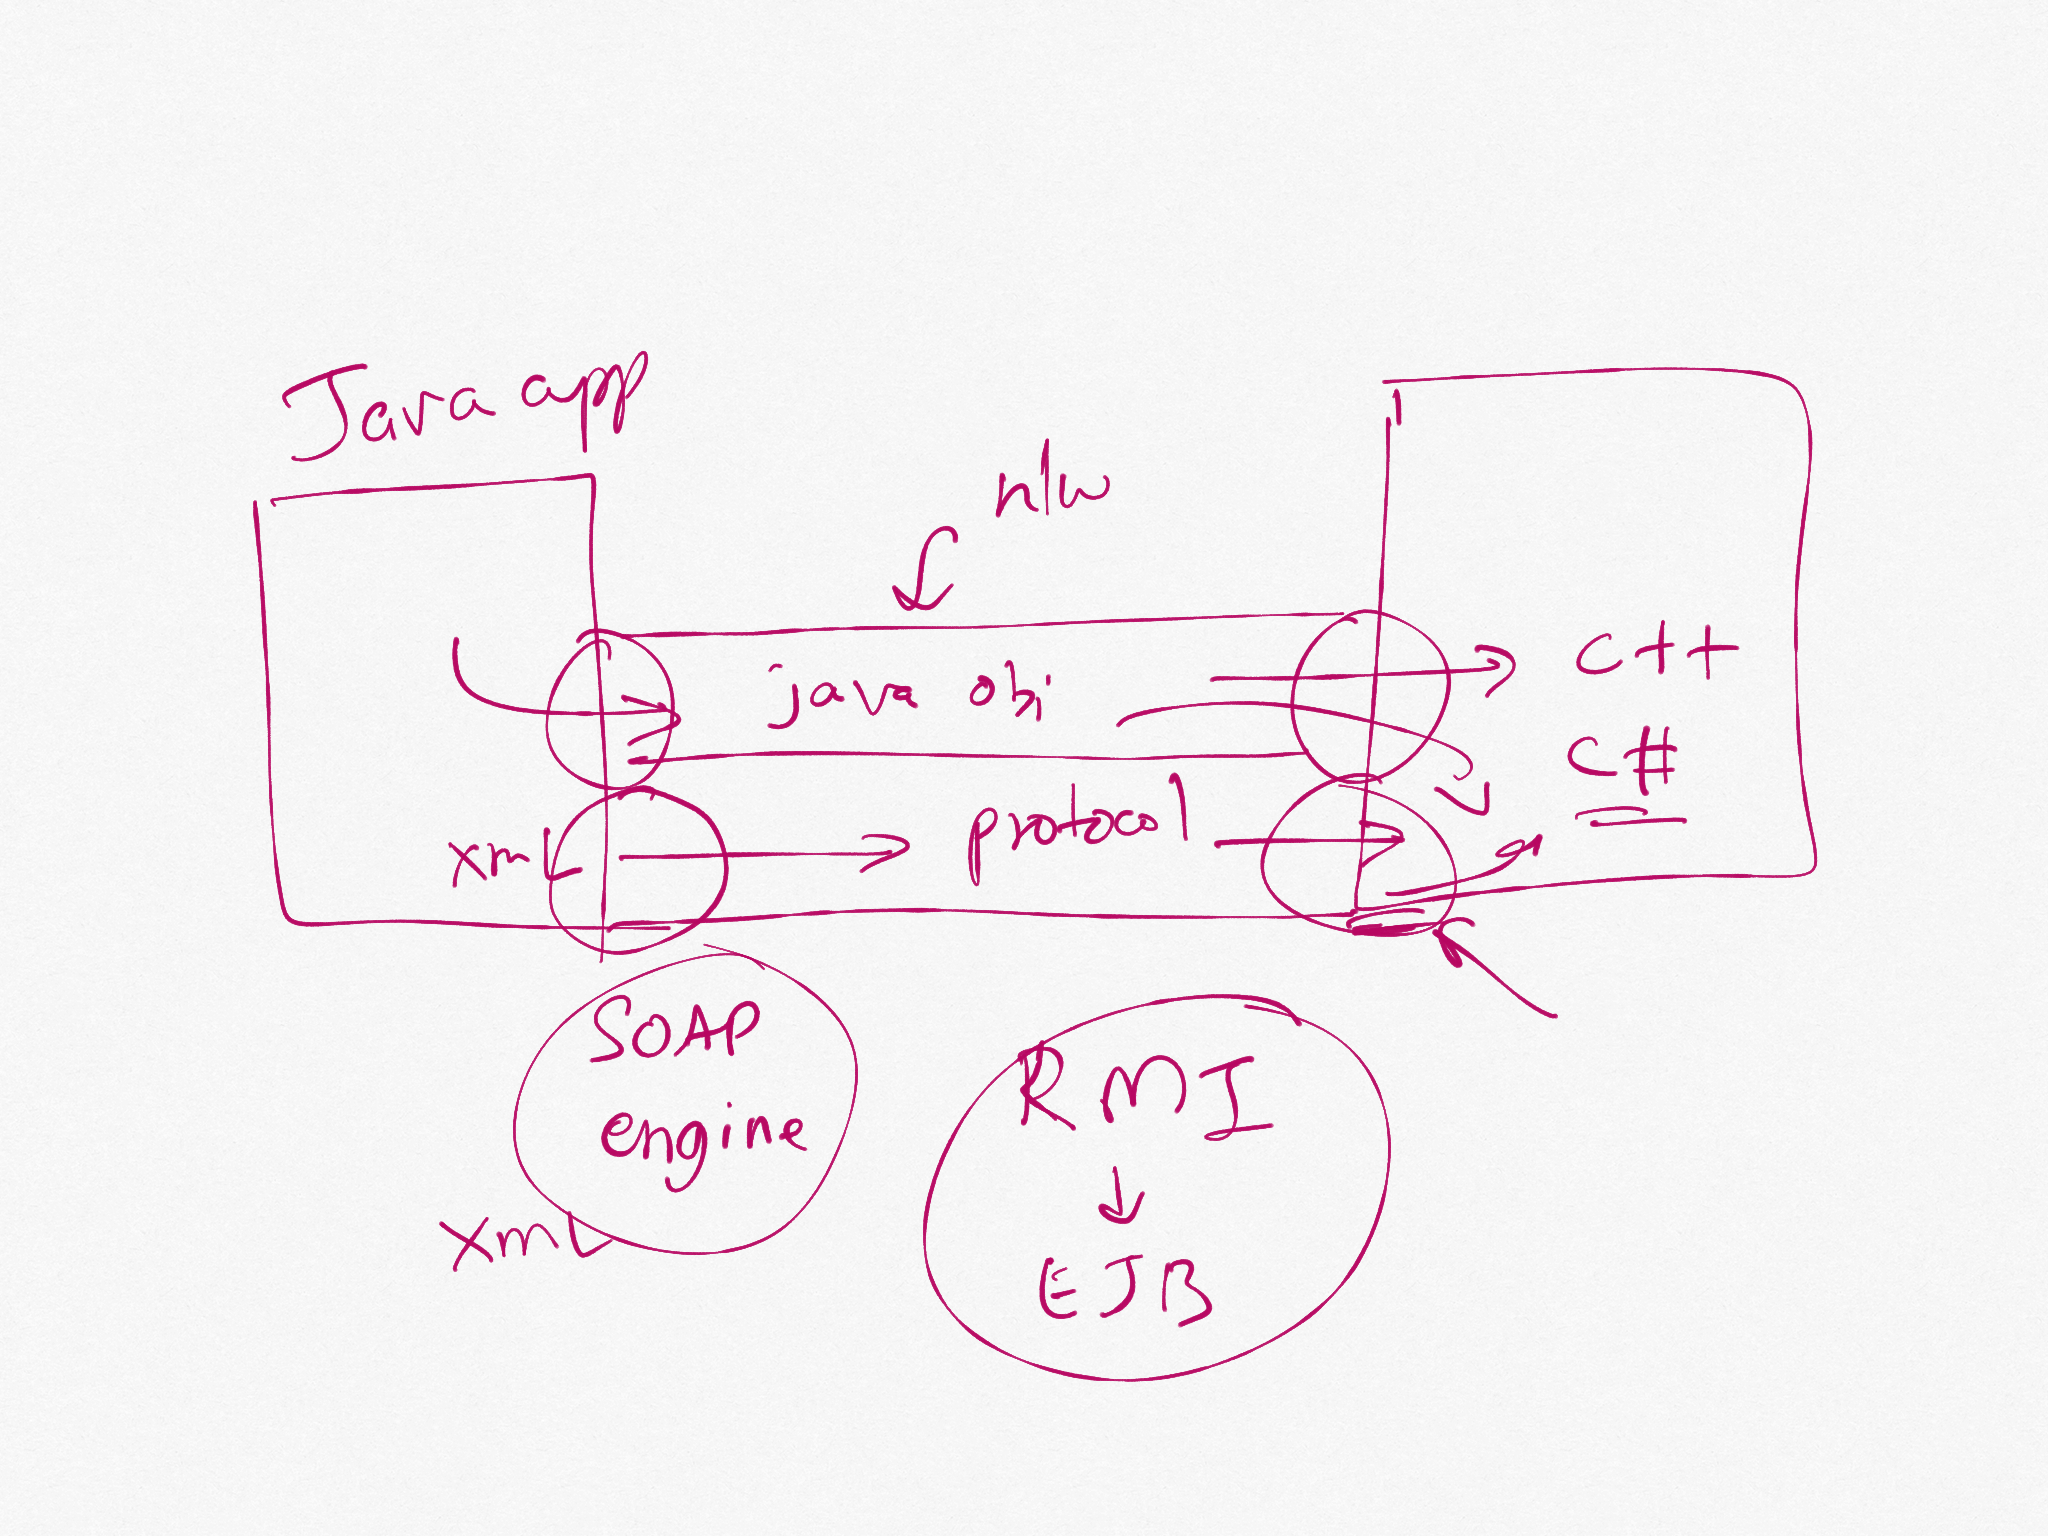 Java app
n/w
java obj
C++
C#
xmL
protocol
SOAP
engine
xmL
RMI
EJB